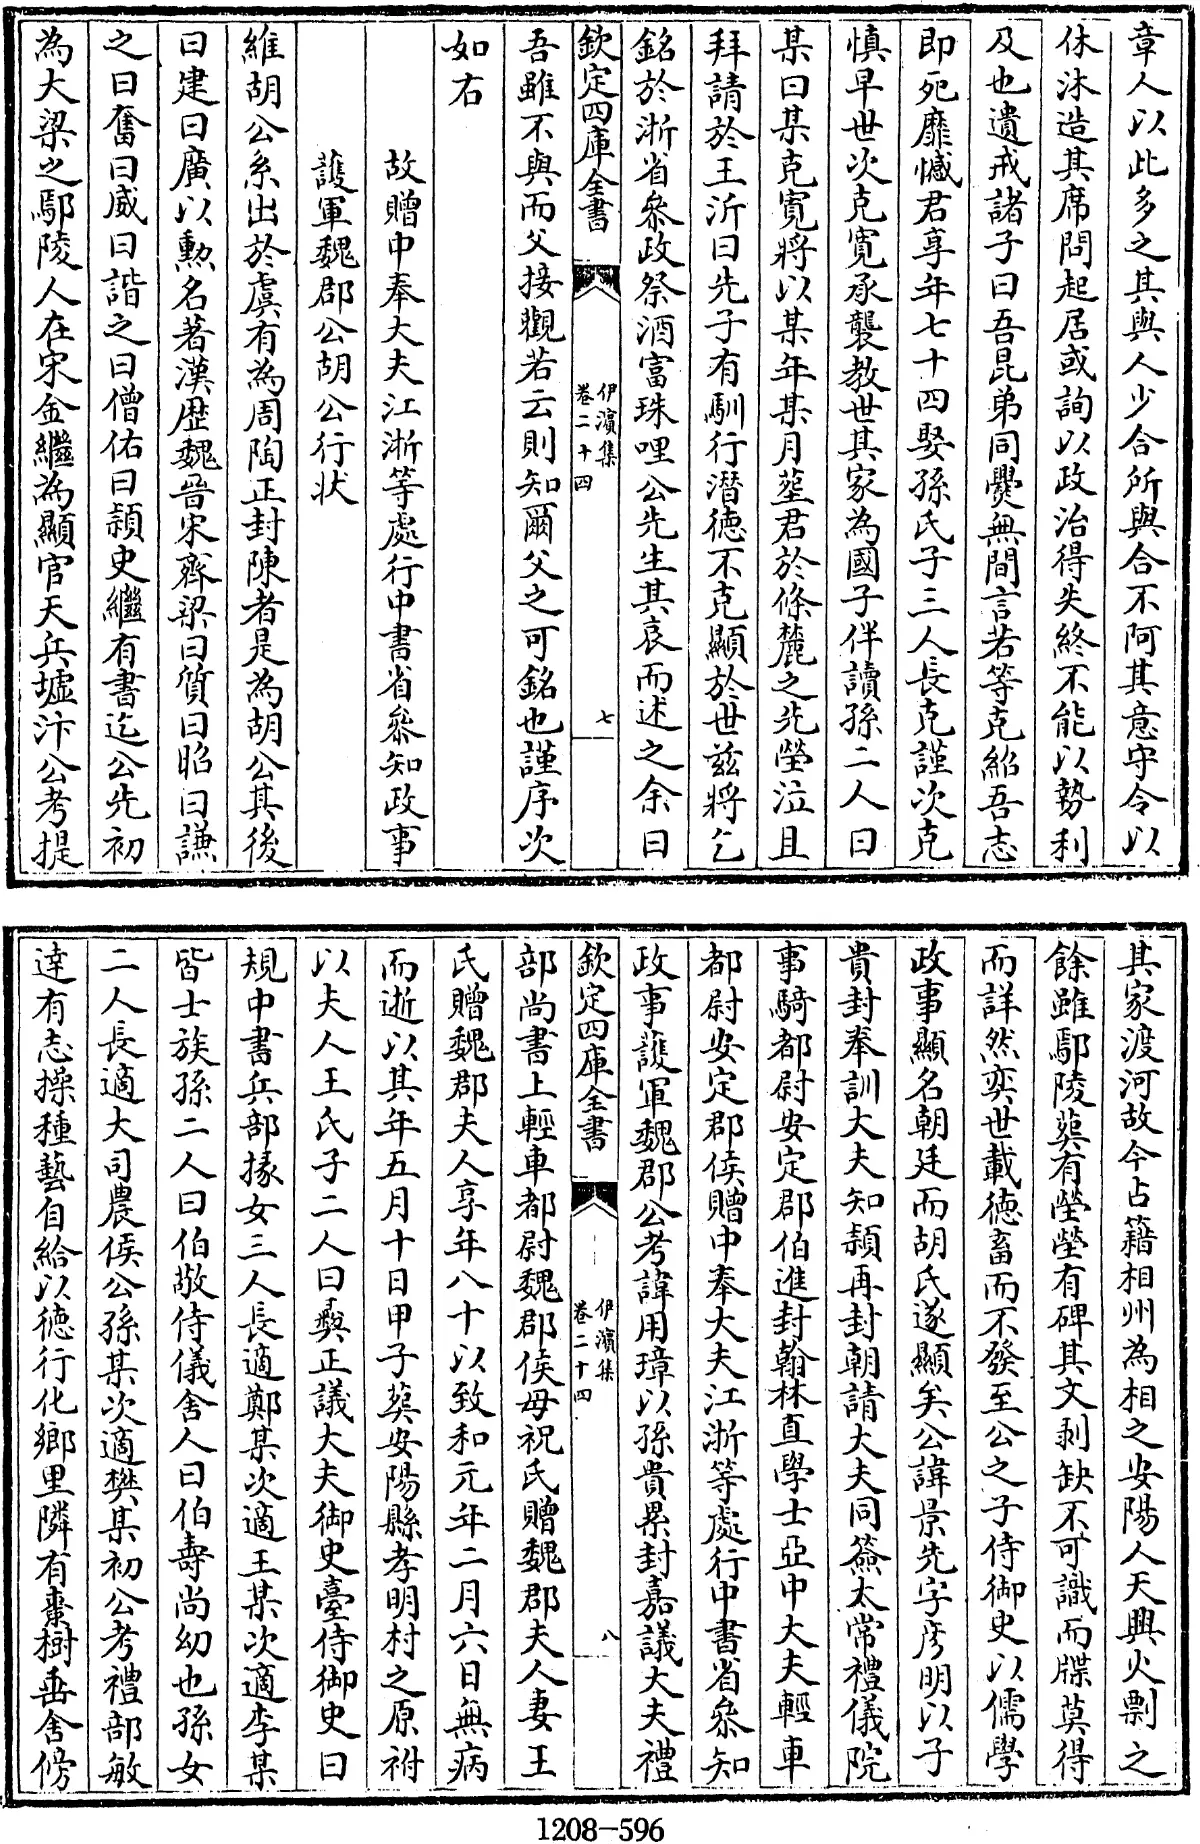 章人以此多之其與人少合所與合不阿其意守令以
休沐造其席問起居或詢以政治得失終不能以勢利
及也遺戒諸子曰吾昆弟同爨無間言若等克紹吾志
即死靡憾君享年七十四娶孫氏子三人長克謹次克
慎早世次克寛承襲教世其家為國子伴讀孫二人曰
某曰某克寛將以某年某月塟君於條麓之先塋泣且
拜請於王沂曰先子有馴行潜徳不克顯於世兹將乞
銘於浙省叅政祭酒富珠哩公先生其哀而述之余曰
欽定四庫全書
伊濱集
卷二十四
七
吾雖不與而父接觀若云則知爾父之可銘也謹序次
如右
故贈中奉大夫江浙等處行中書省叅知政事
護軍魏郡公胡公行状
維胡公系出於虞有為周陶正封陳者是為胡公其後
曰建曰廣以勲名著漢歴魏晉宋齊梁曰質曰昭曰謙
之曰奮曰威曰諧之曰僧佑曰頴史繼有書迄公先初
為大梁之鄢陵人在宋金繼為顯官天兵墟汴公考提
其家渡河故今占籍相州為相之安陽人天興火剽之
餘雖鄢陵𦵏有塋塋有碑其文剥缺不可識而牒莫得
而詳然奕世載徳畜而不發至公之子侍御史以儒學
政事顯名朝廷而胡氏遂顯矣公諱景先字彦明以子
貴封奉訓大夫知頴再封朝請大夫同僉太常禮儀院
事騎都尉安定郡伯進封翰林直學士亞中大夫輕車
都尉安定郡侯贈中奉大夫江浙等處行中書省叅知
政事護軍魏郡公考諱用璋以孫貴累封嘉議大夫禮
欽定四庫全書
伊濱集
卷二十四
八
部尚書上輕車都尉魏郡侯母祝氏贈魏郡夫人妻王
氏贈魏郡夫人享年八十以致和元年二月六日無病
而逝以其年五月十日甲子𦵏安陽縣孝明村之原祔
以夫人王氏子二人曰彛正議大夫御史臺侍御史曰
規中書兵部掾女三人長適鄭某次適王某次適李某
皆士族孫二人曰伯敬侍儀舍人曰伯壽尚幼也孫女
二人長適大司農侯公孫某次適樊某初公考禮部敏
逹有志操種藝自給以徳行化鄉里隣有棗樹垂舍傍
1208-596